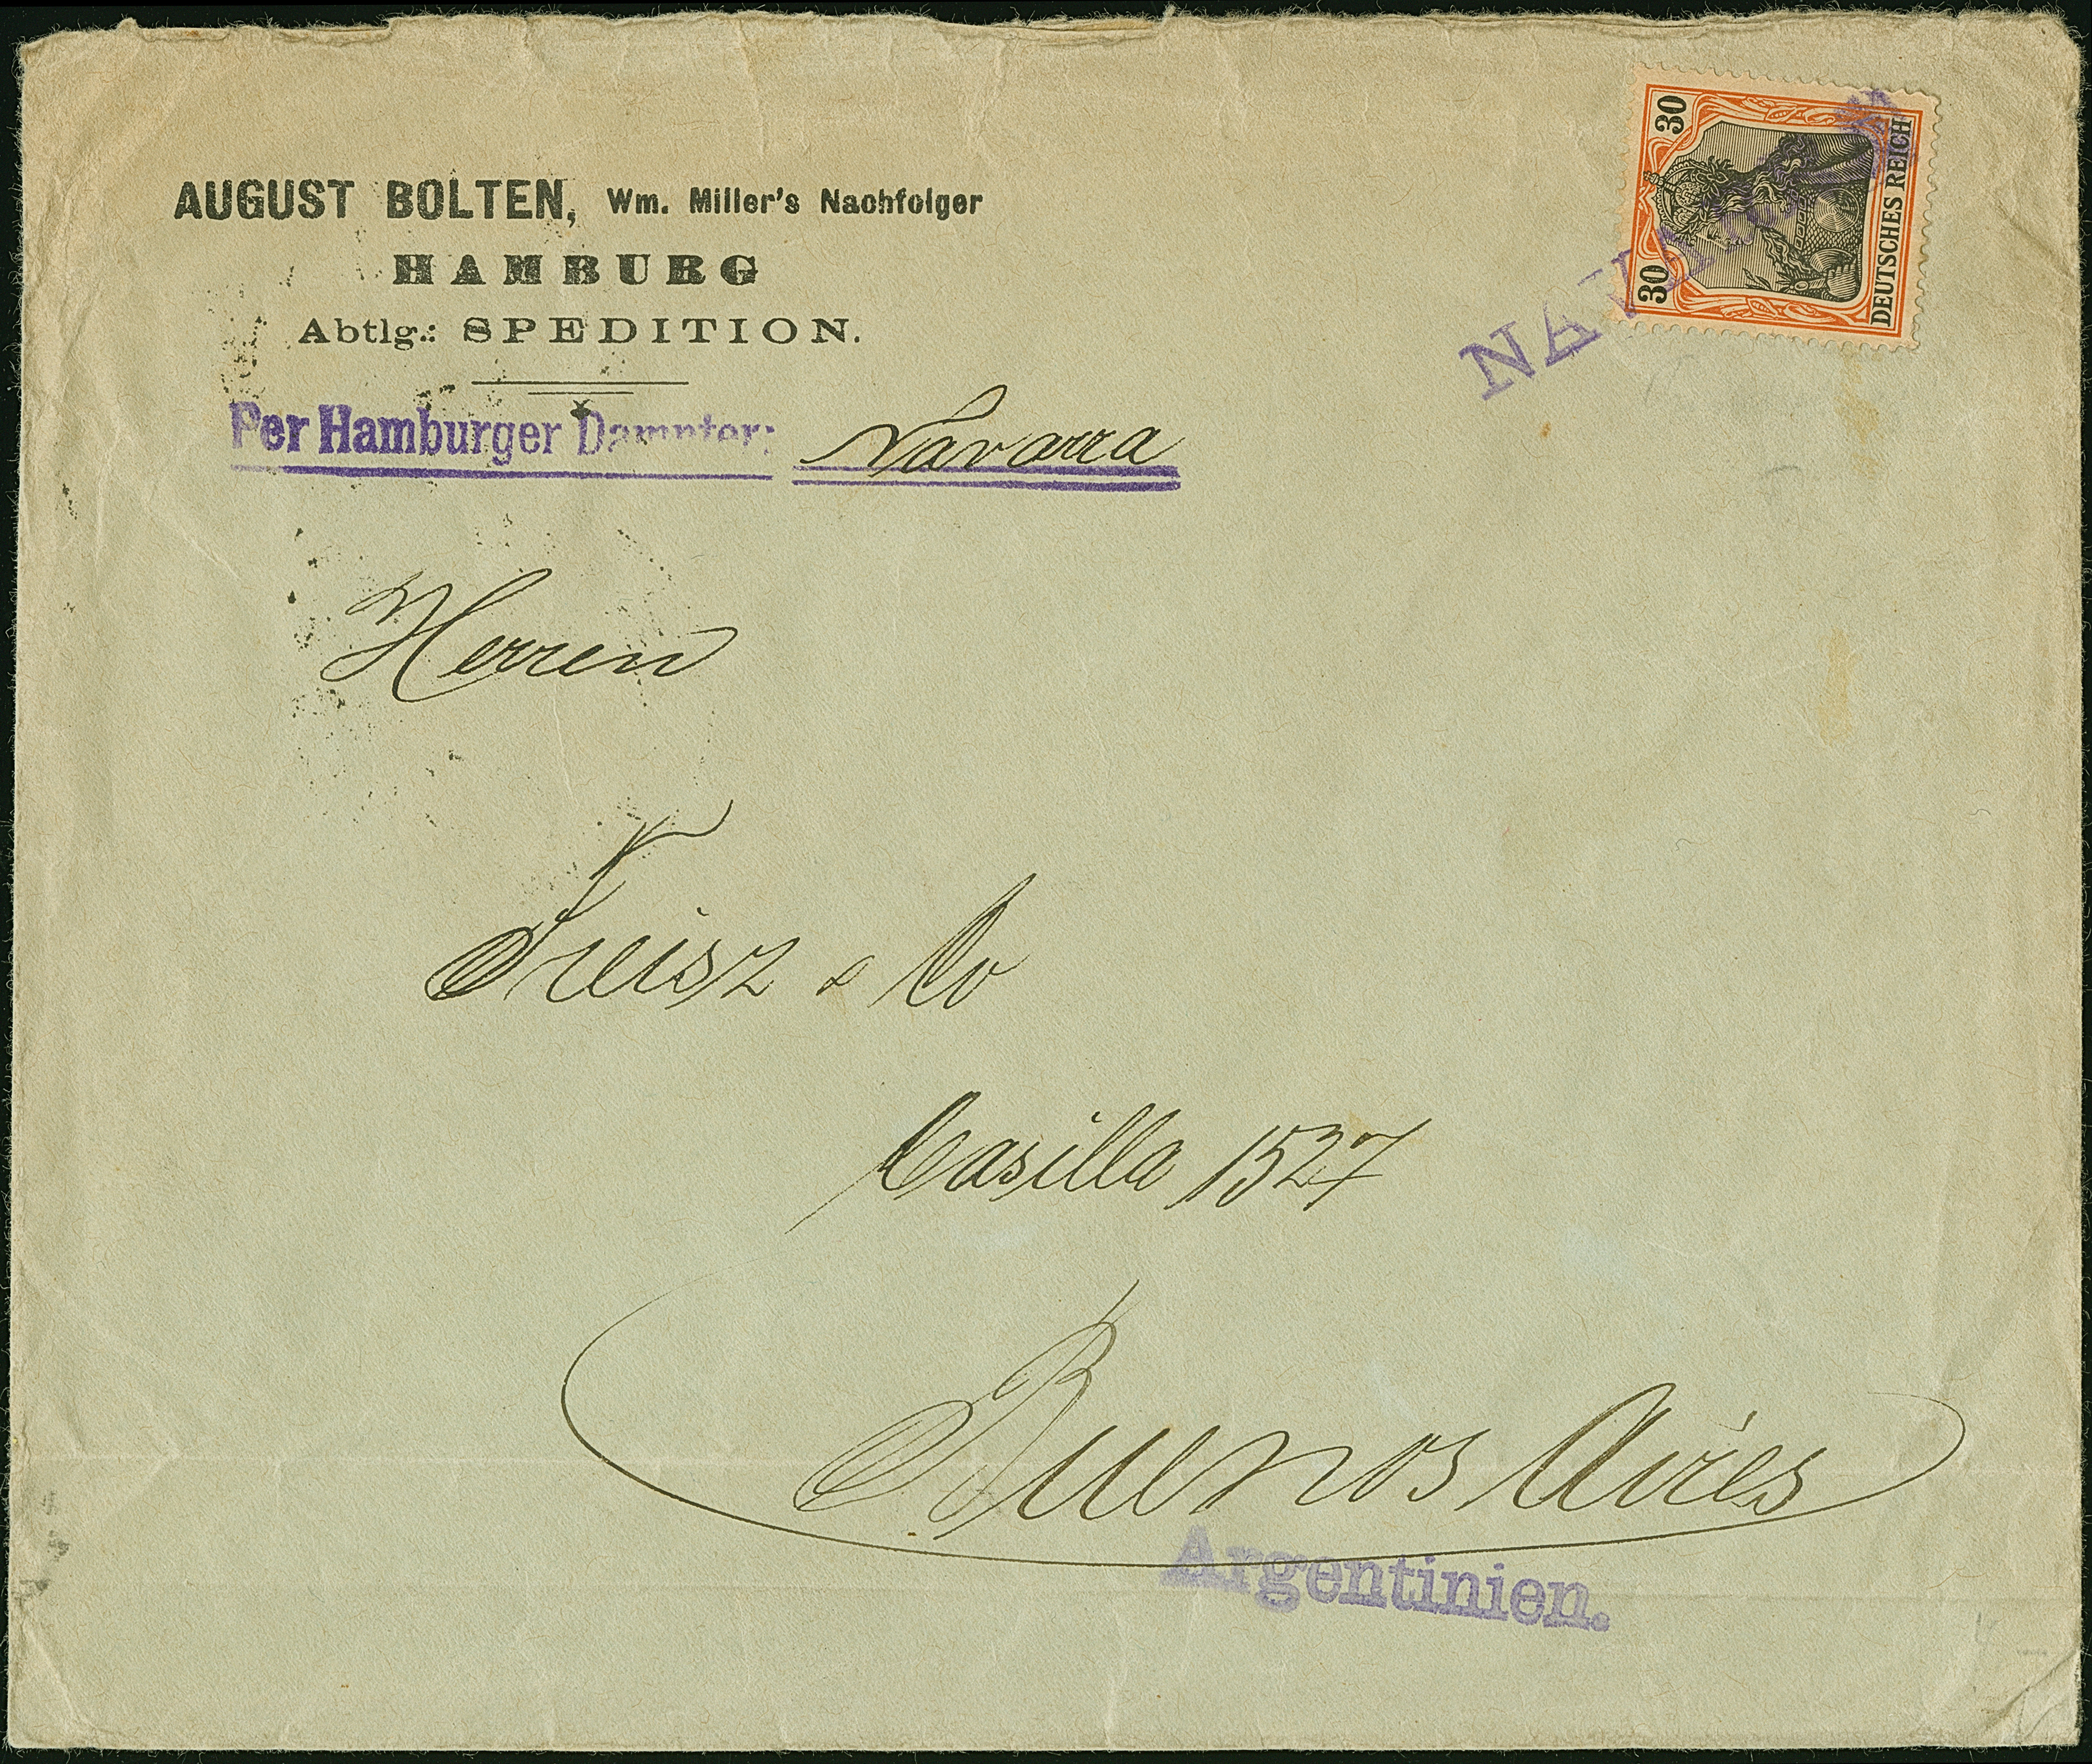 AUGUST BOLTEN, Wm. Miller's Nachfolger
HAMBURG
Abtlg.: SPEDITION.
Per Hamburger Dampfer: Navarra
30 30
DEUTSCHES REICH
Herren
& Co
Casilla 1527
Buenos Aires
Argentinien.